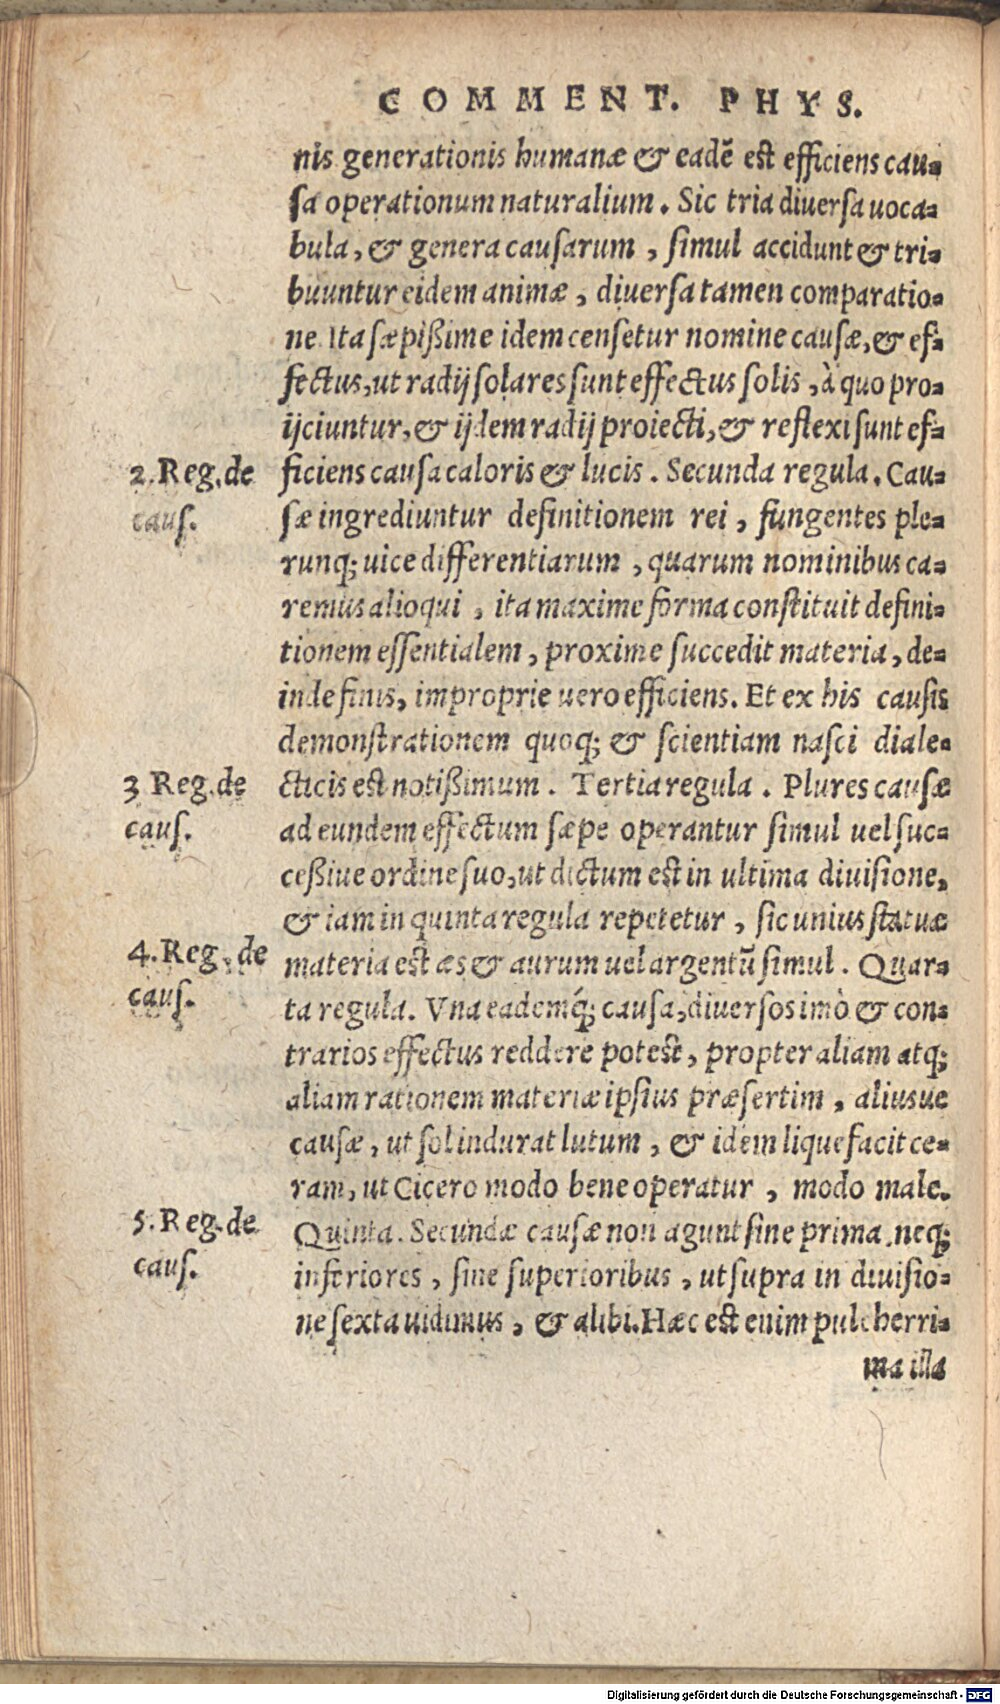 COMMENT. PHYS.
nis generationis humanæ & eadē est efficiens cau-
sa operationum naturalium. Sic tria diuersa uoca-
bula, & genera causarum, simul accidunt & tri-
buuntur eidem animæ, diuersa tamen comparatio-
ne. Ita sæpißime idem censetur nomine causæ, & ef-
fectus, ut radij solares sunt effectus solis, à quo pro-
ijciuntur, & ijdem radij proiecti, & reflexi sunt ef-
2. Reg. de
caus.
ficiens causa caloris & lucis. Secunda regula. Cau-
sæ ingrediuntur definitionem rei, fungentes ple-
runq; uice differentiarum, quarum nominibus ca-
remus alioqui, ita maxime forma constituit defini-
tionem essentialem, proxime succedit materia, de-
inde finis, improprie uero efficiens. Et ex his causis
demonstrationem quoq; & scientiam nasci diale-
3 Reg. de
caus.
cticis est notißimum. Tertia regula. Plures causæ
ad eundem effectum sæpe operantur simul uel suc-
ceßiue ordine suo, ut dictum est in ultima diuisione,
& iam in quinta regula repetetur, sic unius statuæ
4. Reg. de
caus.
materia est æs & aurum uel argentū simul. Quar-
ta regula. Vna eademq́; causa, diuersos imò & con-
trarios effectus reddere potest, propter aliam atq;
aliam rationem materiæ ipsius præsertim, aliusue
causæ, ut sol indurat lutum, & idem liquefacit ce-
ram, ut Cicero modo bene operatur, modo male.
5. Reg. de
caus.
Quinta. Secundæ causæ non agunt sine prima, neq;
inferiores, sine superioribus, ut supra in diuisio-
ne sexta uidimus, & alibi. Hæc est enim pulcherri-
ma illa
Digitalisierung gefördert durch die Deutsche Forschungsgemeinschaft - DFG